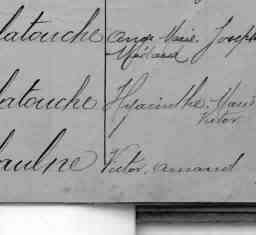 latouche Ange Marie Joseph
Médard
latouche Hyacinthe Marie
Victor
laulne Victor, amand